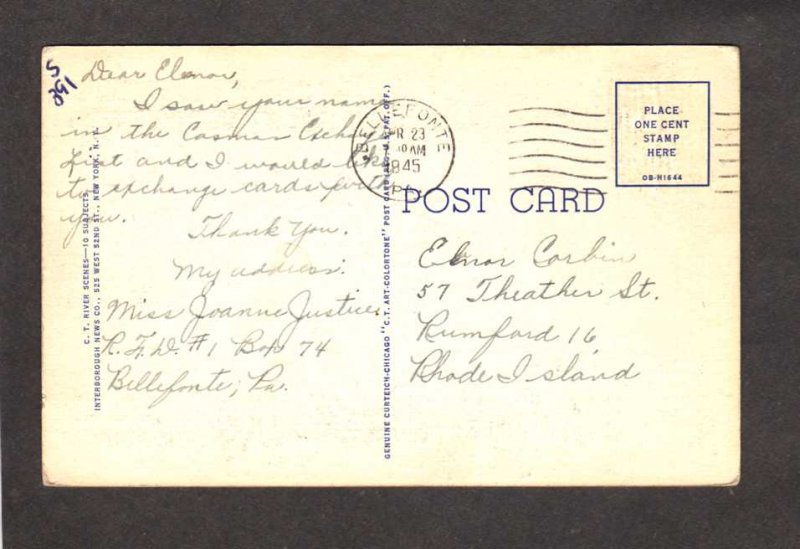 Dear Elenor,
I saw your name
in the Casmas Exchange
list and I would like
to exchange cards with
you.
Thank You.
My address:
Miss Joanne Justice
R.F.D. #1 Box 74
Bellefonte, Pa.
C. T. RIVER SCENES—10 SUBJECTS
INTERBOROUGH NEWS CO., 525 WEST 52ND ST., NEW YORK, N. Y.
GENUINE CURTEICH-CHICAGO "C.T. ART-COLORTONE" POST CARD (REG. U.S. PAT. OFF.)
BELLEFONTE
APR 23
AM
1945
PA
POST CARD
PLACE
ONE CENT
STAMP
HERE
OB-H1644
Elnor Corbin
57 Theather St.
Rumford 16
Rhode Island